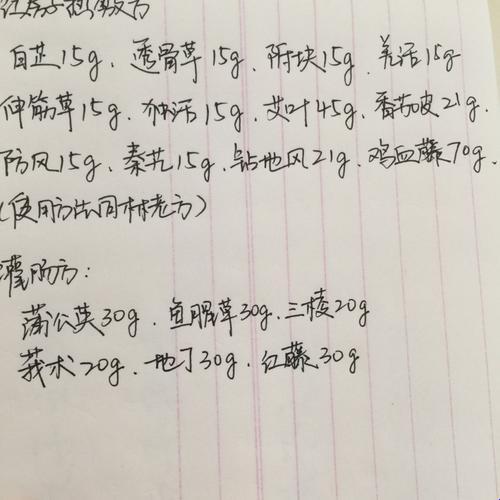 红房子热敷方
白芷15g、透骨草15g、附块15g、羌活15g
伸筋草15g、独活15g、艾叶45g、香茄皮21g、
防风15g、秦艽15g、钻地风21g、鸡血藤70g、
(使用方法同林老方)
灌肠方:
蒲公英30g、鱼腥草30g、三棱20g
莪术20g、地丁30g、红藤30g